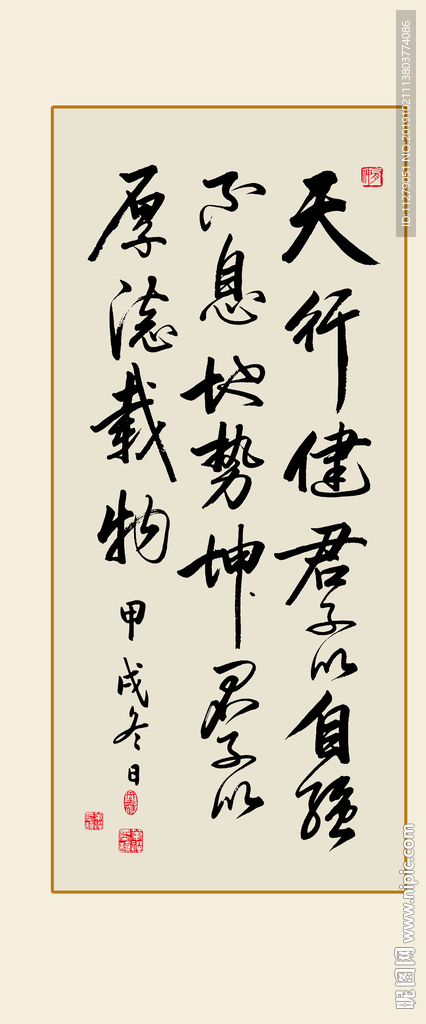 天行健君子以自强
不息地势坤君子以
厚德载物
甲戌冬日
ID:11279051 NO:20191021113803774086
昵图网 www.nipic.com